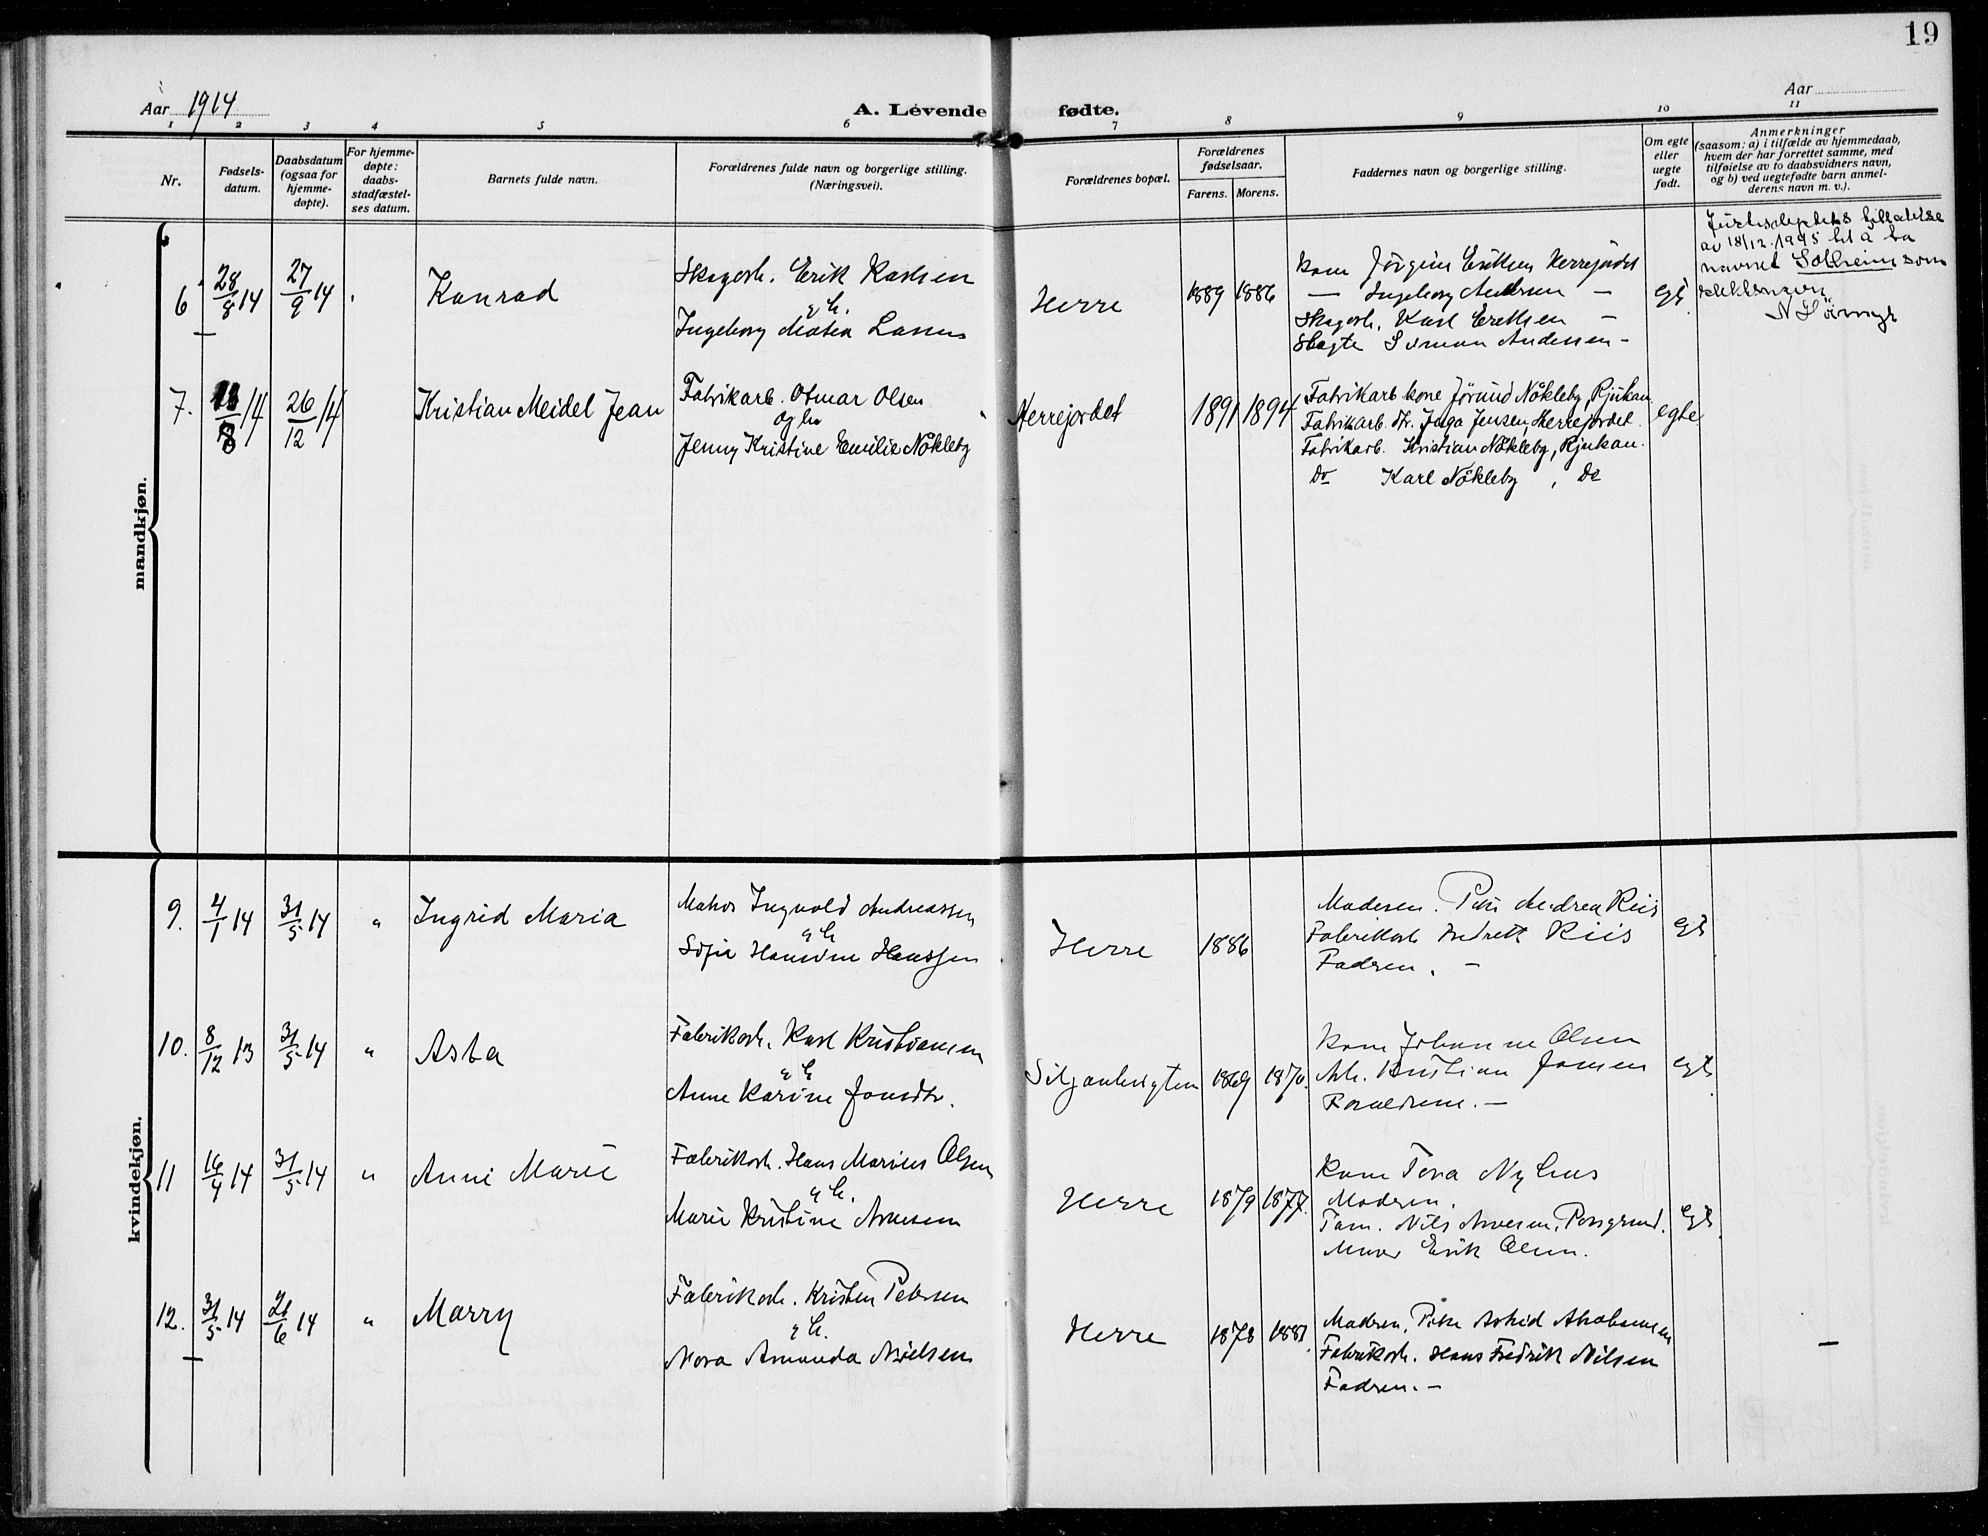 19
Aar 1914
A. Levende fødte.
Aar
1 2 3 4 5 6 7 8 9 10 11
Nr.
Fødsels-
datum.
Daabsdatum
(ogsaa for
hjemme-
døpte).
For hjemme-
døpte:
daabs-
stadfæstel-
ses datum.
Barnets fulde navn.
Forældrenes fulde navn og borgerlige stilling.
(Næringsvei).
Forældrenes bopæl.
Forældrenes
fødselsaar.
Farens. Morens.
Faddernes navn og borgerlige stilling.
Om egte
eller
uegte
født.
Anmerkninger
(saasom: a) i tilfælde av hjemmedaab,
hvem der har forrettet samme, med
tilføielse av to daabsvidners navn,
og b) ved uegtefødte barn anmel-
derens navn m. v.).
mandkjøn.
6 28/8 14 27/9 14 Konrad
Skogarb. Erik Karlsen
og h.
Ingeborg Mathea Larsen
Herre 1889 1886
Kone Jørgine Eriksen Herrejordet
— Ingeborg Andersen —
Skogarb. Karl Eriksen —
Simon Andersen —
egt
av 18/12.1945 til å ta
navnet Solheim som
slektsnavn.
7. 8 14 26/12 14 Kristian Meidel Jean
Fabrikarb. Otmar Olsen
og hu
Jenny Kristine Emilie Nökleby
Herrejordet 1891 1894
Fabrikarb. kone Jörund Nökleby, Rjukan
Fabrikarb. Inga Jensen, Herrejordet.
Fabrikarb. Kristian Nökleby, Rjukan.
Do Karl Nökleby, Do
egte
kvindekjøn.
9. 4/1 14 31/5 14 " Ingrid Maria
Ingvald Andreassen
og h.
Sofie Hanssen
Herre 1886
Moderen. Pike Andrea Riis
Fabrikarb. Riis
Fadren. —
egt
10. 8/12 13 31/5 14 " Asta
Fabrikarb. Karl Kristiansen
og h.
Anne Karine Jonsdtr.
1869 1870.
Kone Johanne Olsen
Arb. Kristian Jonsen
Forældrene. —
egt
11 16/4 14 31/5 14 " Anne Marie
Fabrikarb. Hans Marius Olsen
og h.
Marie Kristine Arnesen
Herre 1879 1877.
Kone Tora Nyhus
Modren.
Nils Arnesen, Porsgrund.
Murer Erik Olsen.
egt
12. 31/5 14 21/6 14 " Marry
Fabrikarb. Kristen Petersen
og h.
Nora Amanda Nielsen
Herre 1878 1881.
Modren, Pike Astrid
Fabrikarb. Hans Fredrik Nilsen
Fadren. —
—